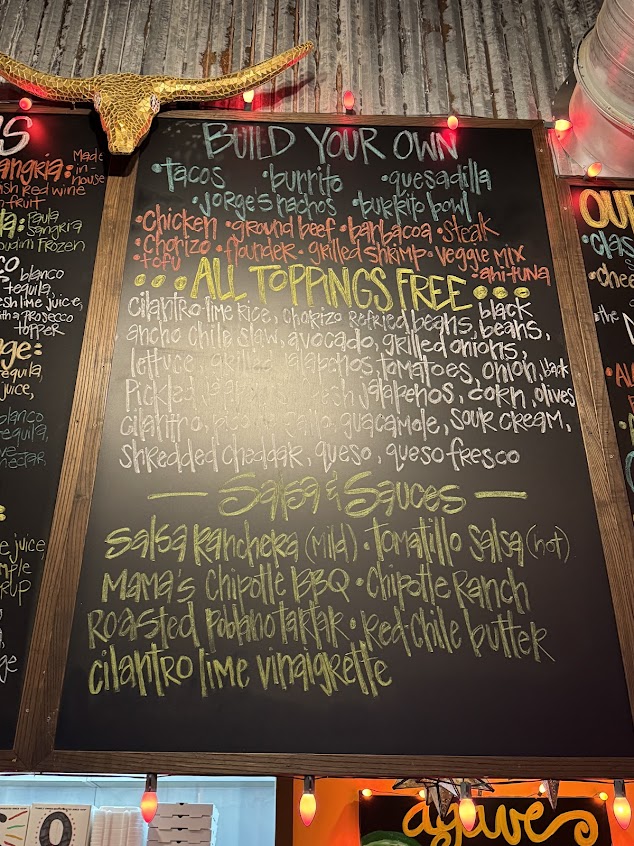 BUILD YOUR OWN
•tacos •burrito •quesadilla
•Jorge's nachos •burrito bowl
•chicken •ground beef •barbacoa •steak
•chorizo •flounder •grilled shrimp •veggie mix
•tofu •ahi-tuna
•••ALL TOPPINGS FREE•••
cilantro lime rice, chorizo refried beans, black beans,
ancho chile slaw, avocado, grilled onions,
lettuce, grilled jalapeños, tomatoes, onion, black olives
Pickled jalapeños, fresh jalapeños, corn,
cilantro, pico de gallo, guacamole, sour cream,
shredded cheddar, queso, queso fresco
— Salsa & Sauces —
Salsa Ranchera (Mild) • Tomatillo Salsa (hot)
Mama's Chipotle BBQ • Chipotle Ranch
Roasted Poblano tartar • Red Chile butter
cilantro lime vinaigrette
Made in-house
angria:
red wine
fruit
Paula
Sangria
Frozen
blanco
tequila,
lime juice,
with a prosecco
topper
tequila,
juice,
blanco
tequila,
nectar
juice
OUR
•clas
•chee
the
agave